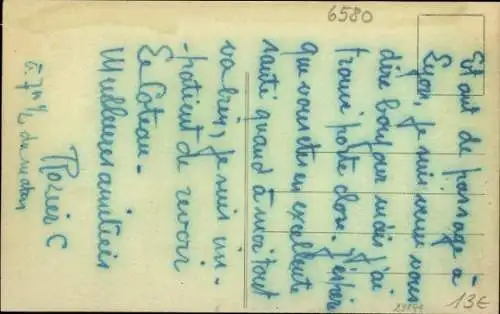 Etant de passage à
Lyon, je suis venu vous
dire bonjour mais j'ai
trouvé porte close. J'espère
que vous êtes en excellente
santé quand à moi tout
va bien, je suis im-
-patient de revoir
Le Coteau.
Meilleures amitiés
C
à 7h ½ du matin
6580
13€